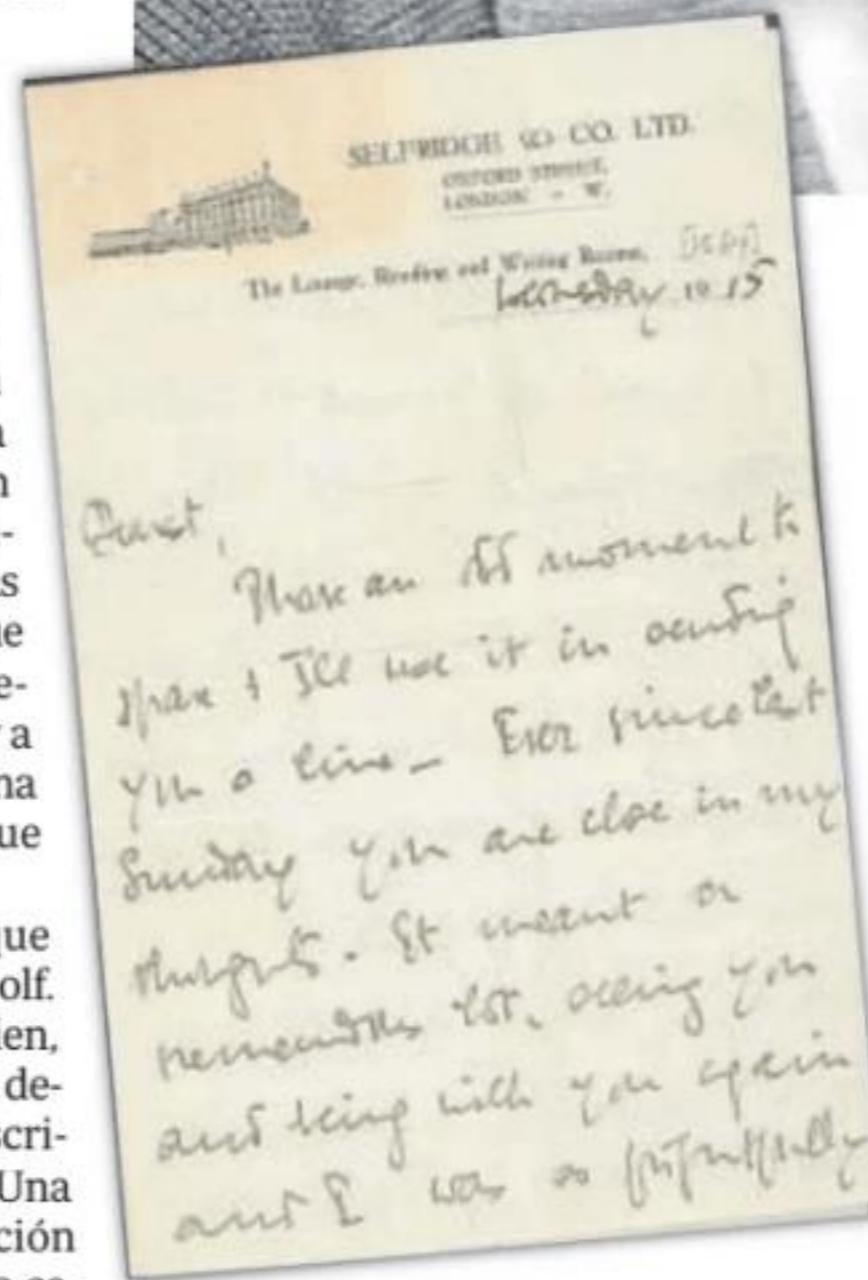 SELFRIDGE & CO. LTD.
OXFORD STREET,
LONDON - W.
The Lounge, Reading and Writing Rooms,
Wednesday 19 15
Dearest,
I have an odd moment to
spare & I'll use it in sending
you a line _ Ever since last
Sunday you are close in my
thoughts. It meant a
tremendous lot, seeing you
and being with you again
and I was so frightfully
a
n
-
s
ue
e-
a
na
ue
que
olf.
ien,
de-
scri-
Una
ción